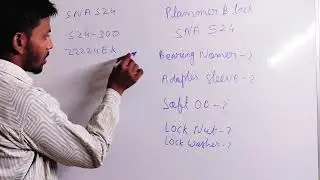 SNA 524
524-300
22224EK
Plammer Block
SNA 524
Bearing Namer-?
Adapter Sleeve-?
Saft OC-?
Lock Nut-?
Lock Washer-?